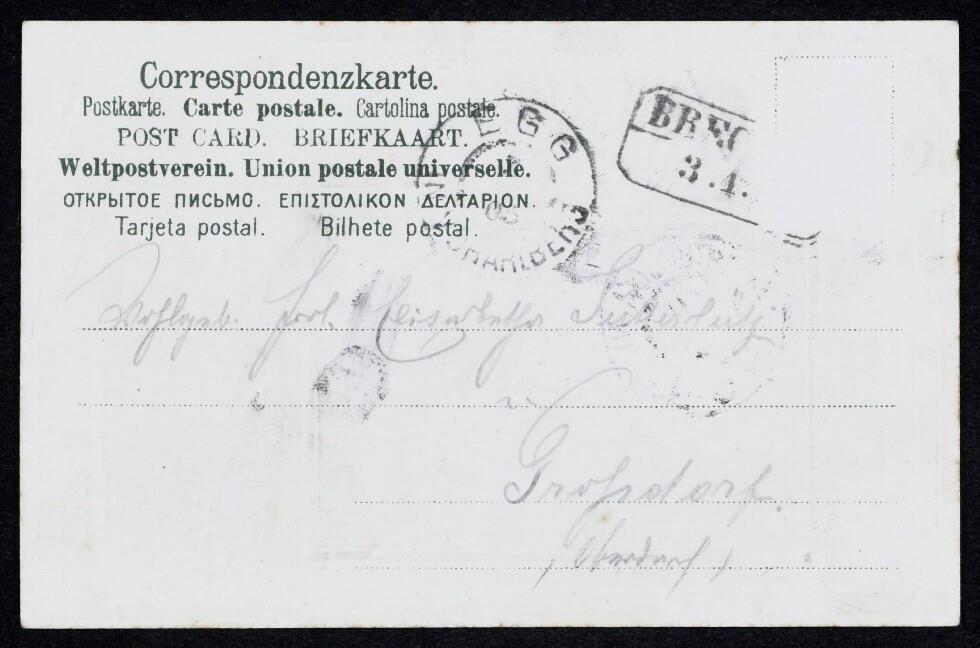 Correspondenzkarte.
Postkarte. Carte postale. Cartolina postale.
POST CARD. BRIEFKAART.
Weltpostverein. Union postale universelle.
ОТКРЫТОЕ ПИСЬМО. ΕΠΙΣΤΟΛΙΚΟΝ ΔΕΛΤΑΡΙΟΝ.
Tarjeta postal. Bilhete postal.
EGG
VORARLBERG
BREG
3.4.
Wohlgeb. Frl. Elisabetha
in
Großdorf
(Oberdorf)